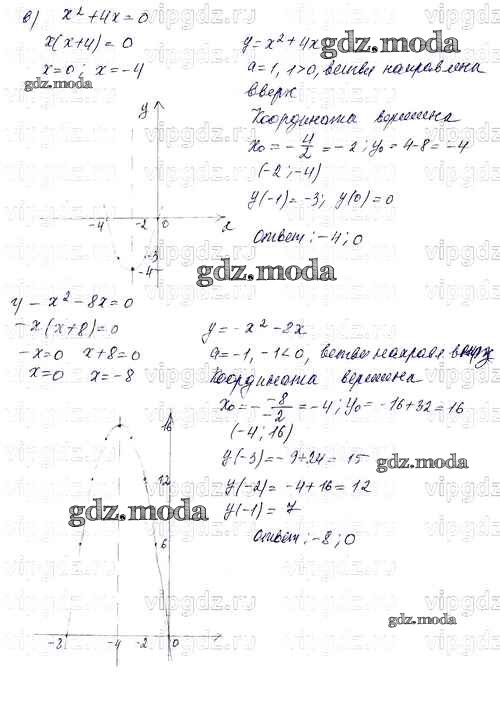 в) x² + 4x = 0
x(x+4) = 0
x=0; x=-4
y = x² + 4x
a=1, 1>0, ветви направлена
вверх
Координата вершина
x₀ = -4/2 = -2; y₀ = 4-8 = -4
(-2; -4)
y(-1) = -3; y(0) = 0
Ответ: -4; 0
y
-4 -2 0 x
-3
-4
г) -x² - 8x = 0
-x(x+8) = 0
-x=0 x+8=0
x=0 x=-8
y = -x² - 8x
a=-1, -1<0, ветви направл вниз
Координата вершина
x₀ = -(-8)/(-2) = -4; y₀ = -16+32 = 16
(-4; 16)
y(-3) = -9+24 = 15
y(-2) = -4+16 = 12
y(-1) = 7
Ответ: -8; 0
16
12
6
-8 -4 -2 0
gdz.moda
gdz.moda
gdz.moda
gdz.moda
gdz.moda
gdz.moda
vipgdz.ru